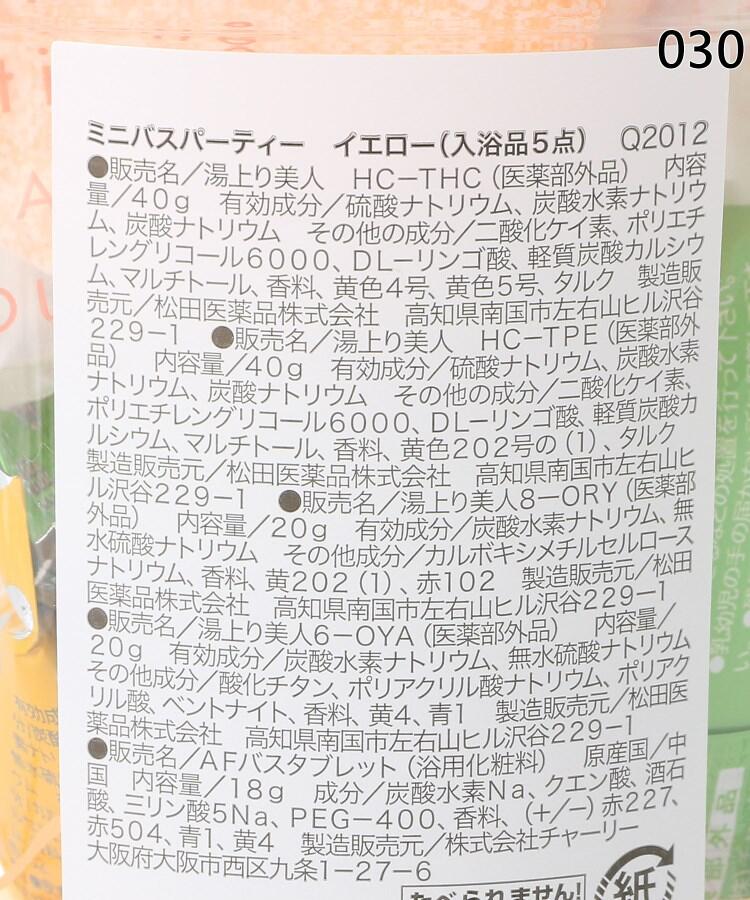 030
ミニバスパーティー　イエロー(入浴品5点)　Q2012
●販売名／湯上り美人　HC－THC(医薬部外品)　内容
量／40g　有効成分／硫酸ナトリウム、炭酸水素ナトリウ
ム、炭酸ナトリウム　その他の成分／二酸化ケイ素、ポリエチ
レングリコール6000、DL－リンゴ酸、軽質炭酸カルシウ
ム、マルチトール、香料、黄色4号、黄色5号、タルク　製造販
売元／松田医薬品株式会社　高知県南国市左右山ヒル沢谷
229－1　●販売名／湯上り美人　HC－TPE(医薬部外
品)　内容量／40g　有効成分／硫酸ナトリウム、炭酸水素
ナトリウム、炭酸ナトリウム　その他の成分／二酸化ケイ素、
ポリエチレングリコール6000、DL－リンゴ酸、軽質炭酸カ
ルシウム、マルチトール、香料、黄色202号の(1)、タルク
製造販売元／松田医薬品株式会社　高知県南国市左右山ヒ
ル沢谷229－1　●販売名／湯上り美人8－ORY(医薬部
外品)　内容量／20g　有効成分／炭酸水素ナトリウム、無
水硫酸ナトリウム　その他成分／カルボキシメチルセルロース
ナトリウム、香料、黄202(1)、赤102　製造販売元／松田
医薬品株式会社　高知県南国市左右山ヒル沢谷229－1
●販売名／湯上り美人6－OYA(医薬部外品)　内容量／
20g　有効成分／炭酸水素ナトリウム、無水硫酸ナトリウム
その他成分／酸化チタン、ポリアクリル酸ナトリウム、ポリアク
リル酸、ベントナイト、香料、黄4、青1　製造販売元／松田医
薬品株式会社　高知県南国市左右山ヒル沢谷229－1
●販売名／AFバスタブレット(浴用化粧料)　原産国／中
国　内容量／18g　成分／炭酸水素Na、クエン酸、酒石
酸、三リン酸5Na、PEG－400、香料、(+/−)赤227、
赤504、青1、黄4　製造販売元／株式会社チャーリー
大阪府大阪市西区九条1－27－6
たべられません!
紙